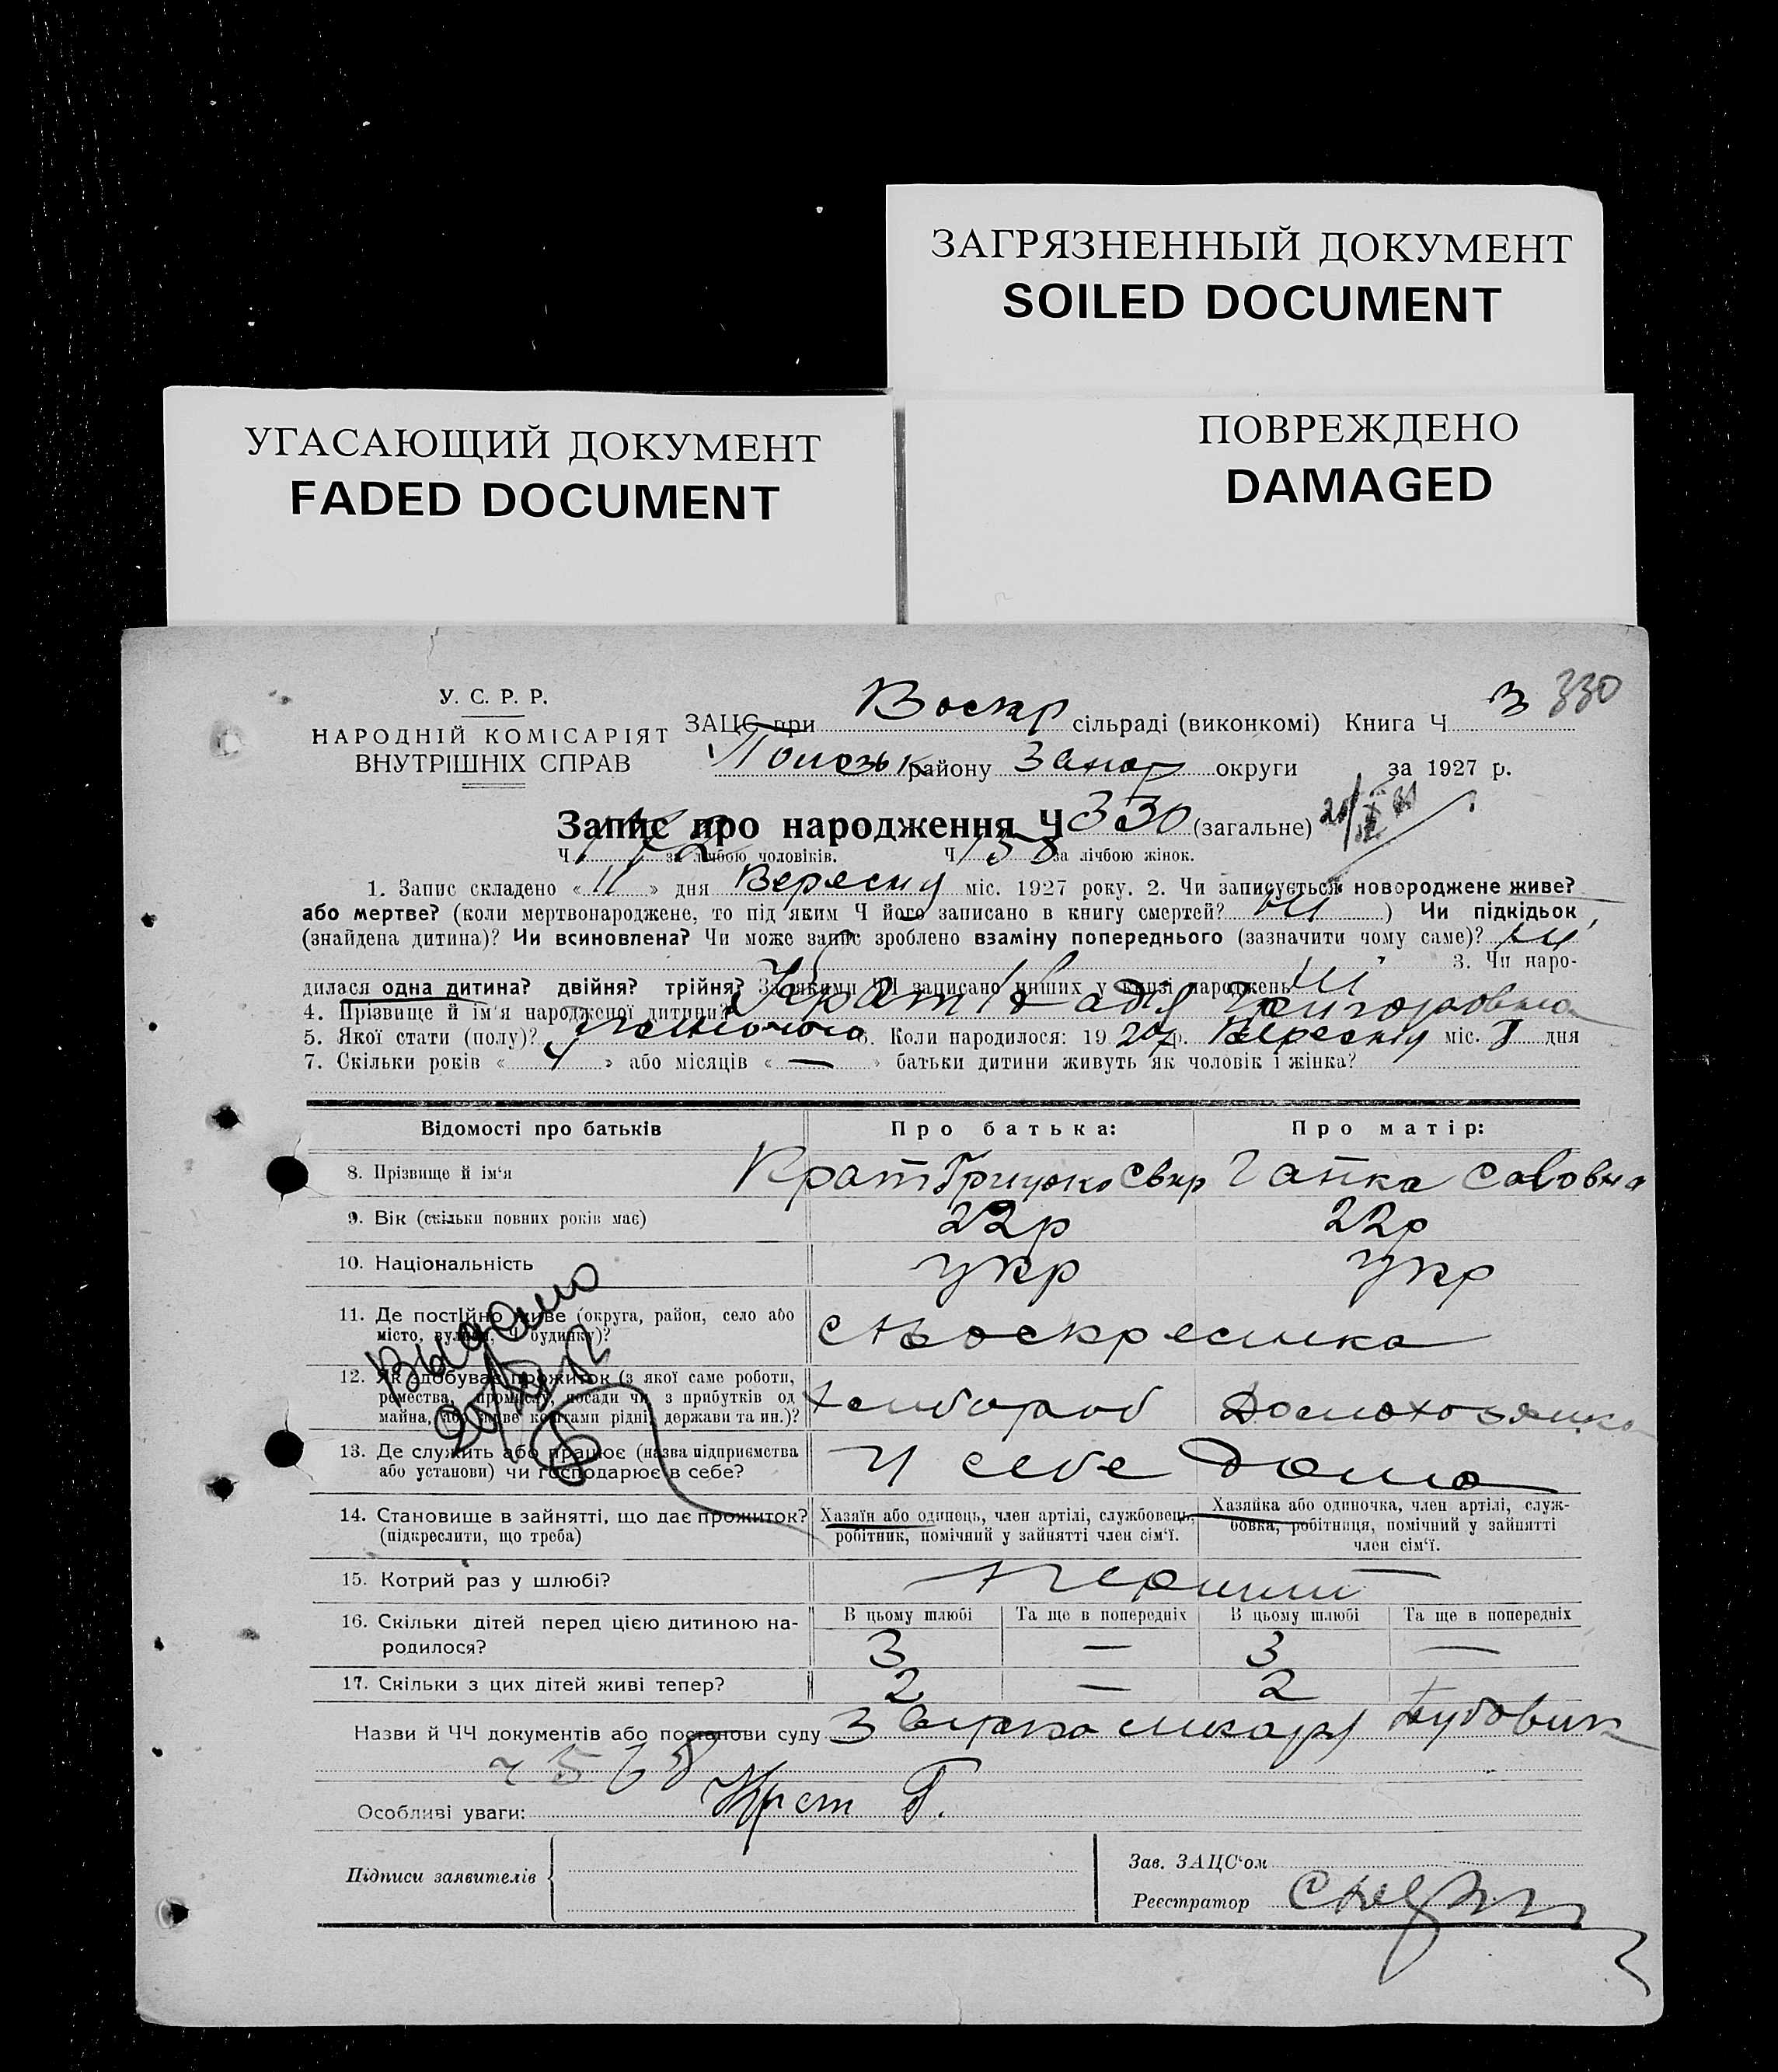 ЗАГРЯЗНЕННЫЙ ДОКУМЕНТ
SOILED DOCUMENT
УГАСАЮЩИЙ ДОКУМЕНТ
FADED DOCUMENT
ПОВРЕЖДЕНО
DAMAGED
У. С. Р. Р.
НАРОДНІЙ КОМІСАРІЯТ
ВНУТРІШНІХ СПРАВ
ЗАЦС при Воскр сільраді (виконкомі) Книга Ч 3 330
району Запор округи за 1927 р.
Запис про народження Ч 330 (загальне)
Ч 172 за лічбою чоловіків. Ч 158 за лічбою жінок.
1. Запис складено « 11 » дня Вересня міс. 1927 року. 2. Чи записується новороджене живе?
або мертве? (коли мертвонароджене, то під яким Ч його записано в книгу смертей? ні ) Чи підкідьок
(знайдена дитина)? Чи всиновлена? Чи може запис зроблено взаміну попереднього (зазначити чому саме)? ні
3. Чи наро-
дилася одна дитина? двійня? трійня? За якими ЧЧ записано инших у книзі народжень ні
4. Прізвище й ім'я народженої дитини? Крат Надія Григоровна
5. Якої стати (полу)? жіночого 6. Коли народилося: 1927 р. Вересня міс. 8 дня
7. Скільки років « 4 » або місяців « — » батьки дитини живуть як чоловік і жінка?
Відомості про батьків Про батька: Про матір:
8. Прізвище й ім'я Крат Грицько Свир Гапка Савовна
9. Вік (скільки повних років має) 22р 22р
10. Національність укр укр
11. Де постійно живе (округа, район, село або
місто, вулиця, Ч будинку)? с Воскресенка
12. Як здобуває прожиток (з якої саме роботи,
ремества, промислу, посади чи з прибутків од
майна, або живе коштами рідні, держави та ин.)? хлибороб Домохозяйка
13. Де служить або працює (назва підприємства
або установи) чи господарює в себе? У себе дома
Выдано
14. Становище в зайнятті, що дає прожиток?
(підкреслити, що треба)
Хазяїн або одинець, член артілі, службовець,
робітник, помічний у зайнятті член сім'ї.
Хазяйка або одиночка, член артілі, служ-
бовка, робітниця, помічний у зайнятті
член сім'ї.
15. Котрий раз у шлюбі? перший
16. Скільки дітей перед цією дитиною на-
родилося?
В цьому шлюбі Та ще в попередніх В цьому шлюбі Та ще в попередніх
3 — 3 —
17. Скільки з цих дітей живі тепер? 2 — 2
Назви й ЧЧ документів або постанови суду
Особливі уваги: Крат Г.
Підписи заявителів
Зав. ЗАЦС'ом
Реєстратор